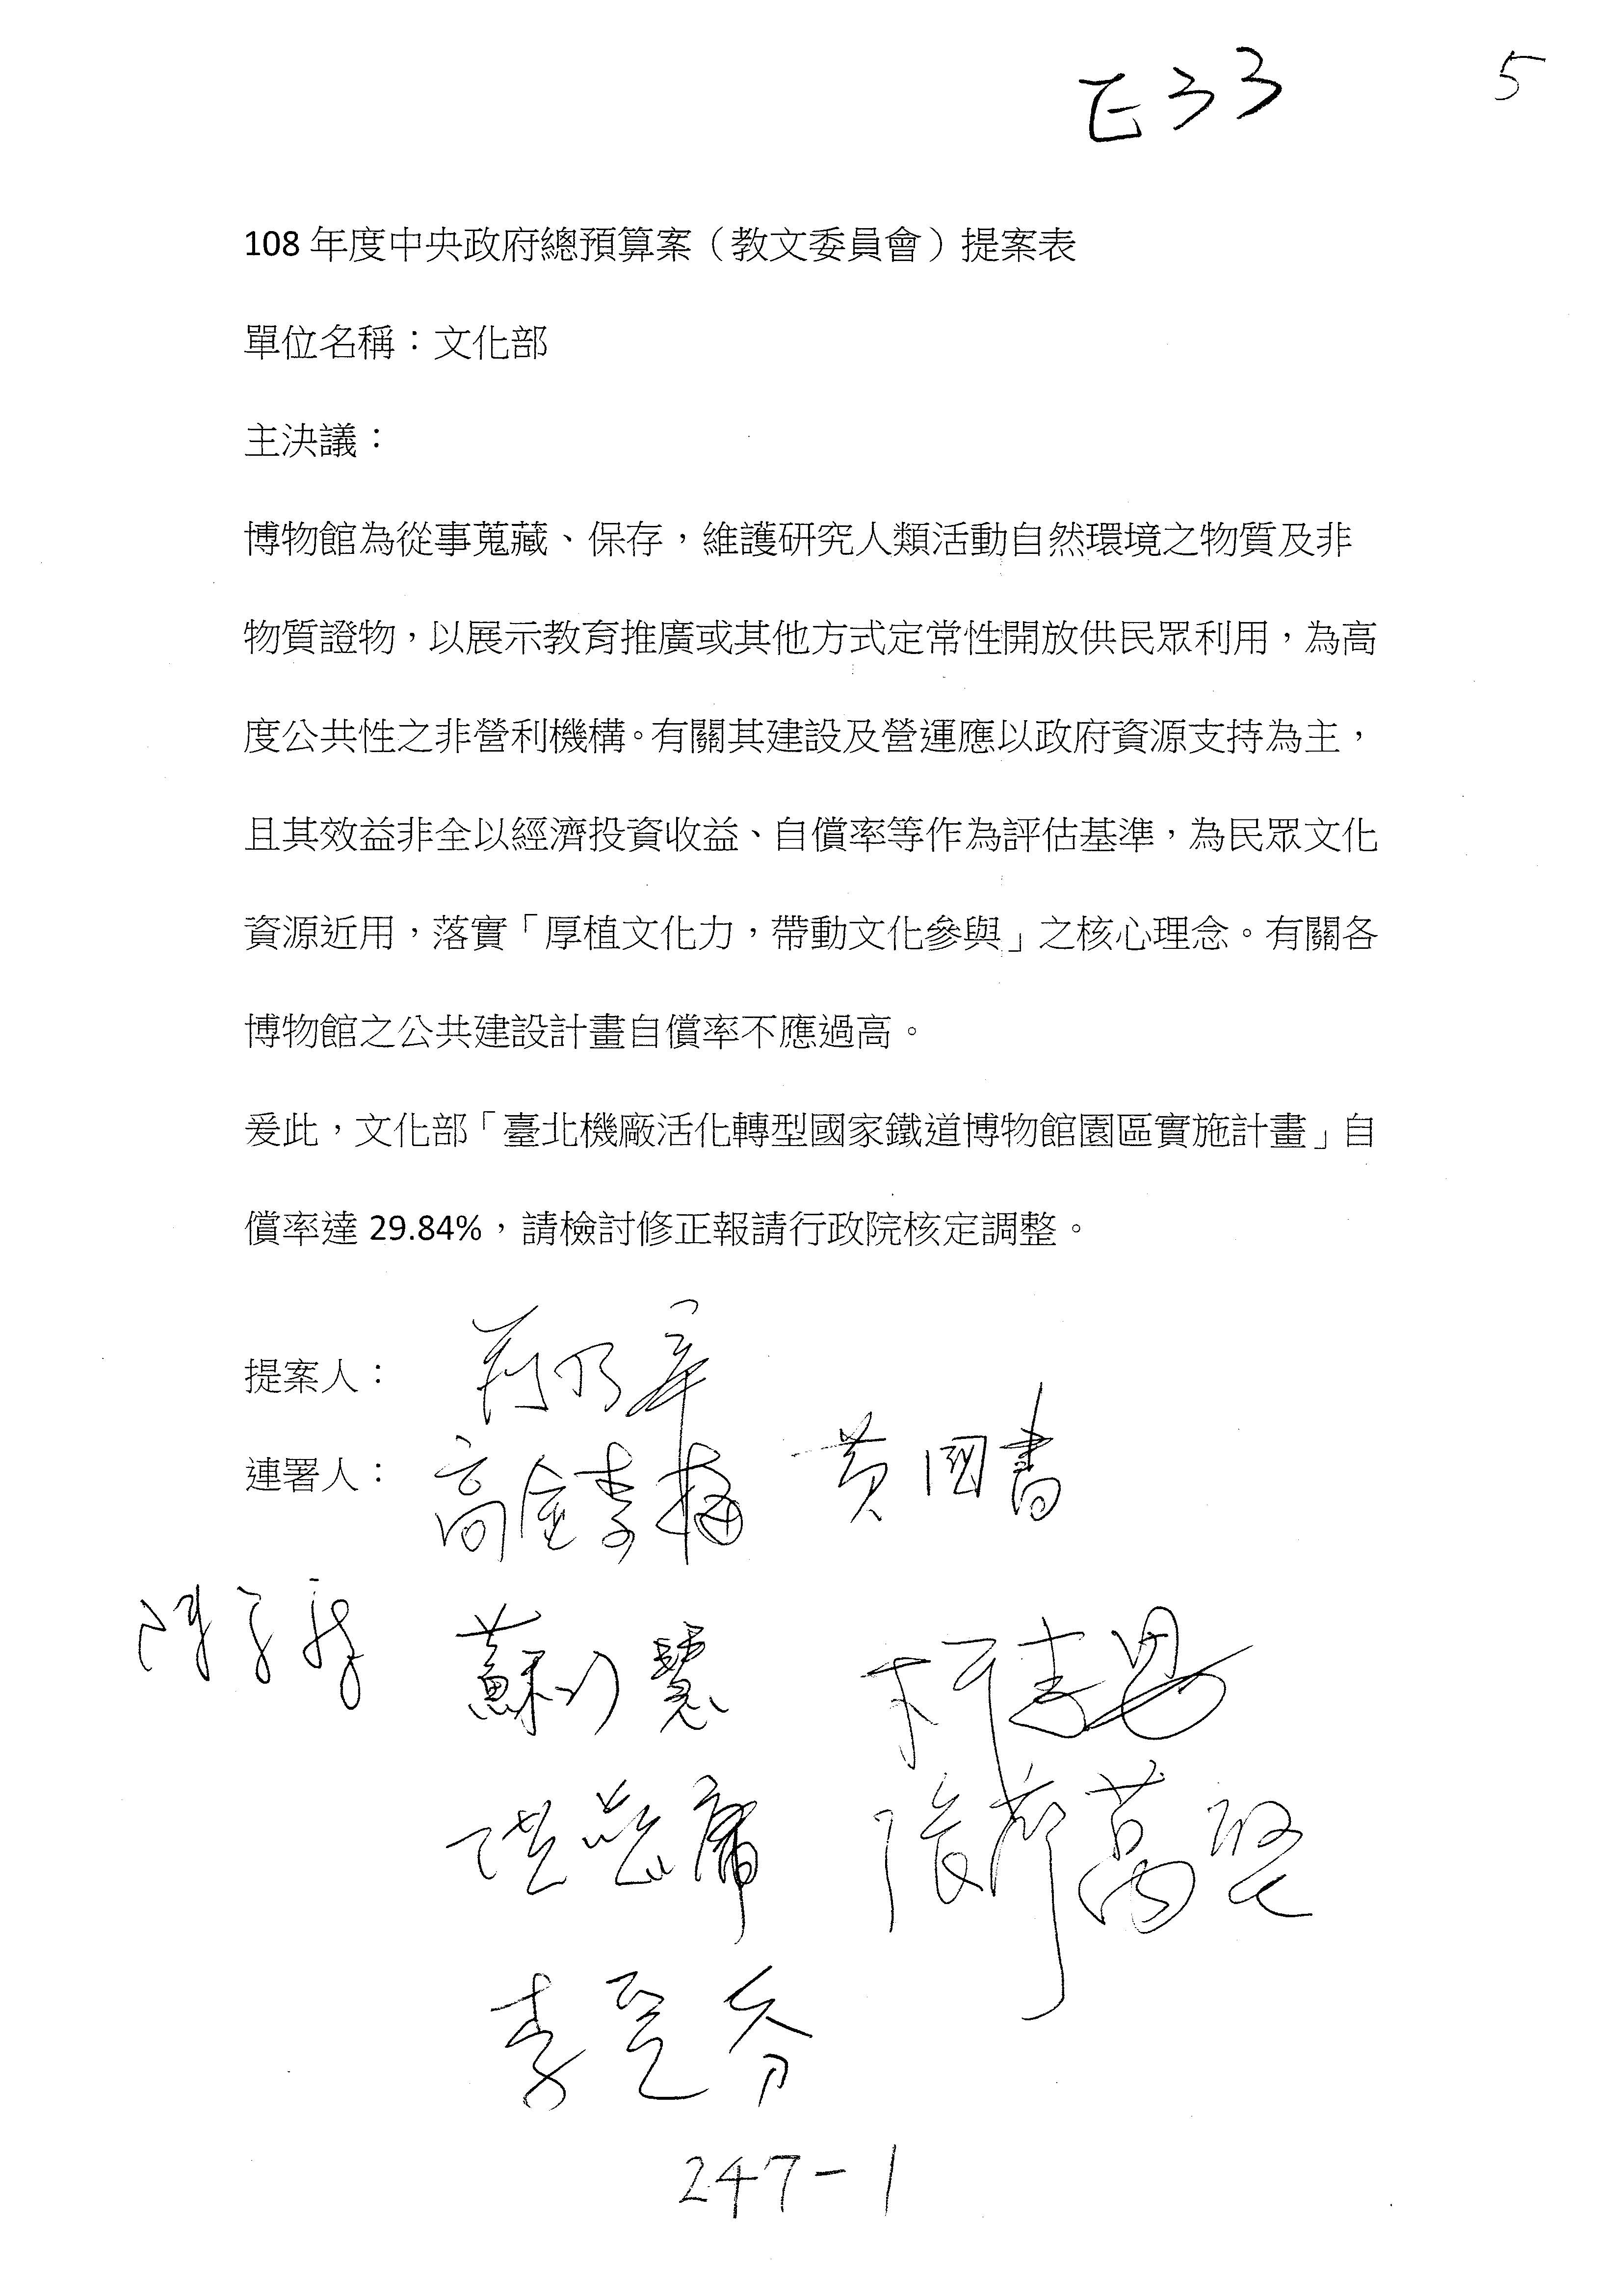 E33
5
108 年度中央政府總預算案（教文委員會）提案表
單位名稱：文化部
主決議：
博物館為從事蒐藏、保存，維護研究人類活動自然環境之物質及非
物質證物，以展示教育推廣或其他方式定常性開放供民眾利用，為高
度公共性之非營利機構。有關其建設及營運應以政府資源支持為主，
且其效益非全以經濟投資收益、自償率等作為評估基準，為民眾文化
資源近用，落實「厚植文化力，帶動文化參與」之核心理念。有關各
博物館之公共建設計畫自償率不應過高。
爰此，文化部「臺北機廠活化轉型國家鐵道博物館園區實施計畫」自
償率達 29.84%，請檢討修正報請行政院核定調整。
提案人：
連署人：高金素梅 黃國書
蘇巧慧
張廖萬堅
247-1